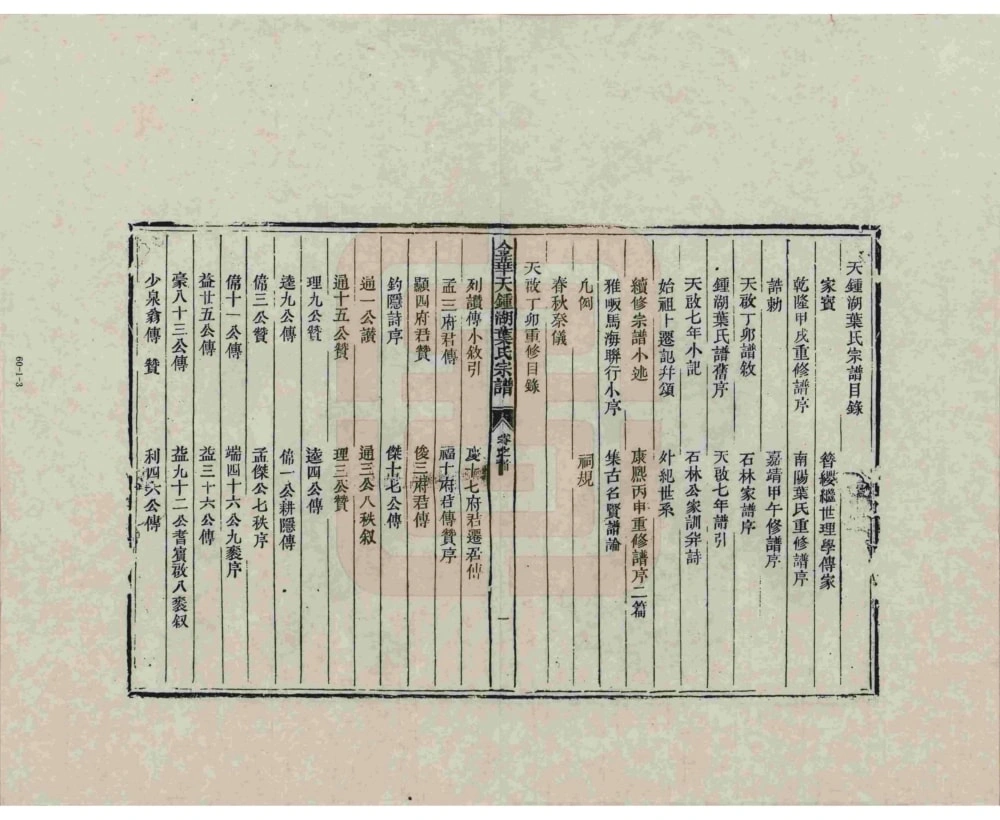 天鍾湖葉氏宗譜目錄
家寶　簪纓繼世理學傳家
乾隆甲戌重修譜序　南陽葉氏重修譜序
誥勅　嘉靖甲午修譜序
天啟丁卯譜敘　石林家譜序
鍾湖葉氏譜舊序　天啟七年譜引
天啟七年小記　石林公家訓并詩
始祖十遷記并頌　外紀世系
續修宗譜小述　康熙丙申重修譜序二篇
雅畈馬海聯行小序　集古名賢譜論
凡例　祠規
春秋祭儀
天啟丁卯重修目錄
金華天鍾湖葉氏宗譜　卷之首　一
列讚傳小敘引　慶十七府君遷居傳
孟三府君傳　福十府君傳贊序
顯四府君贊　俊三府君傳
釣隱詩序　傑十七公傳
通一公讃　通三公八秩叙
通十五公贊　理三公贊
理九公贊　逵四公傳
逵九公傳　俻一公耕隱傳
俻三公贊　孟傑公七秩序
俻十一公傳　端四十六公九袠序
益廿五公傳　益三十六公傳
豪八十三公傳　益九十二公耆賔啟八袠叙
少泉翁傳　贊　利四六公傳
60-1-3